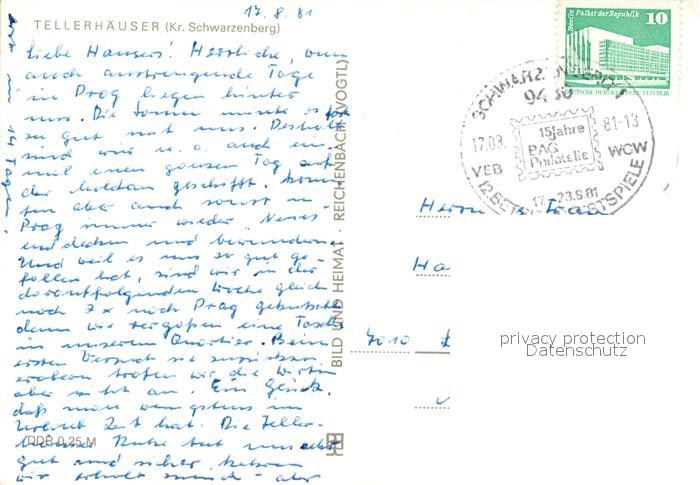 17.8.81
TELLERHÄUSER (Kr. Schwarzenberg)
Liebe Hansers! Herrliche, wenn
auch anstrengende Tage
in Prag liegen hinter
uns. Die Sonne meinte es
so gut mit uns. Deshalb
sind wir u. a. auch ein-
mal einen ganzen Tag auf
der Moldau geschifft. Konn-
ten aber auch sonst in
Prag immer wieder Neues
entdecken und bewundern.
Und weil es uns so gut ge-
fallen hat, sind wir in der
darauffolgenden Woche gleich
noch 2x nach Prag gekutscht
denn wir vergaßen eine Tasche
in unserem Quartier. Beim
ersten Versuch sie zurückzu-
erobern trafen wir die Wirtin
aber nicht an. Ein Glück,
daß man wenigstens im
Urlaub Zeit hat. Die Teller-
häuser Ruhe tut uns sehr
gut und sicher kehren
wir erholt zurück - aber
erst in 14 Tagen!
DDR 0,25 M
BILD UND HEIMAT · REICHENBACH (VOGTL)
Berlin, Palast der Republik
10
DEUTSCHE DEMOKRATISCHE REPUBLIK
SCHWARZENBERG 1
9430
17.08. 81-13
15 Jahre
BAG
Philatelie
VEB WCW
12. BETRIEBSFESTSPIELE
17.-23.8.81
Herrn u. Frau
Ha
7010
privacy protection
Datenschutz